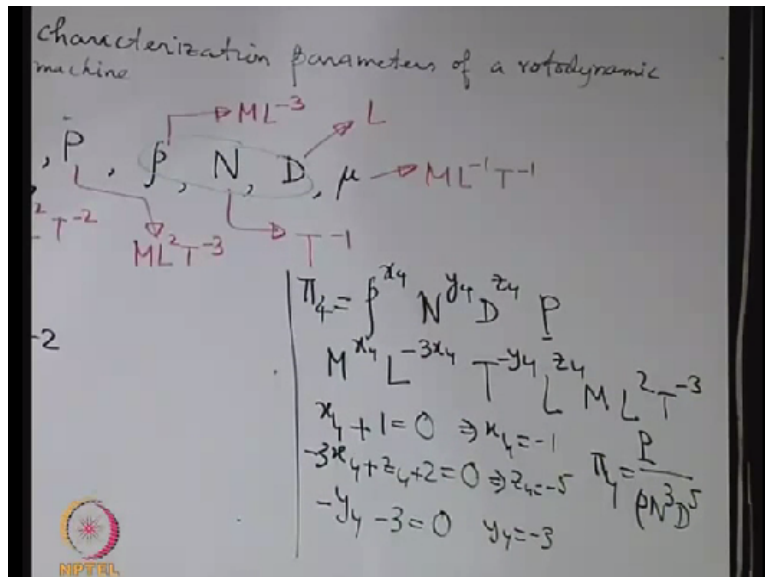 characterization parameters of a rotodynamic
machine
ML⁻³
L
, P, ρ, N, D, μ → ML⁻¹T⁻¹
²T⁻²
ML²T⁻³
T⁻¹
-2
π₄ = ρ^x₄ N^y₄ D^z₄ P
M^x₄ L^-3x₄ T^-y₄ L^z₄ M L² T⁻³
x₄ + 1 = 0 ⇒ x₄ = -1
-3x₄ + z₄ + 2 = 0 ⇒ z₄ = -5
π₄ = P / ρN³D⁵
-y₄ - 3 = 0 y₄ = -3
NPTEL